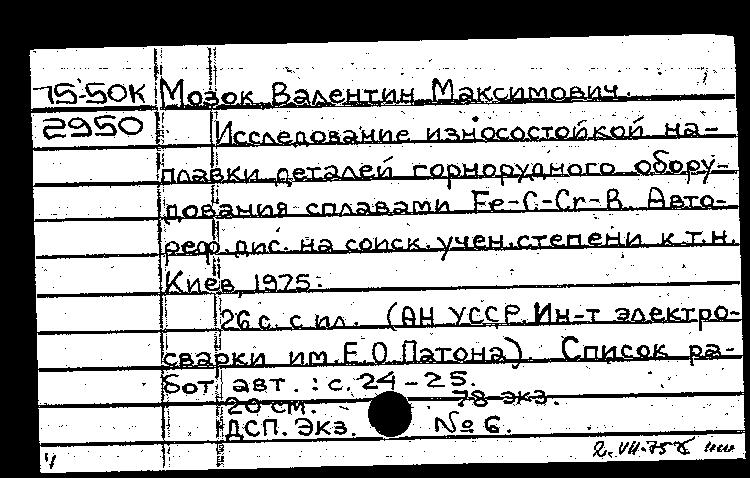 75-50К Мозок Валентин Максимович.
2950 Исследование износостойкой на-
плавки деталей горнорудного обору-
дования сплавами Fe-C-Cr-B. Авто-
реф. дис. на соиск. учен. степени к.т.н.
Киев, 1975.
26 с. с ил. (АН УССР. Ин-т электро-
сварки им. Е.О. Патона). Список ра-
бот авт.: с. 24-25.
20 см. 78 экз.
ДСП. Экз. № 6.